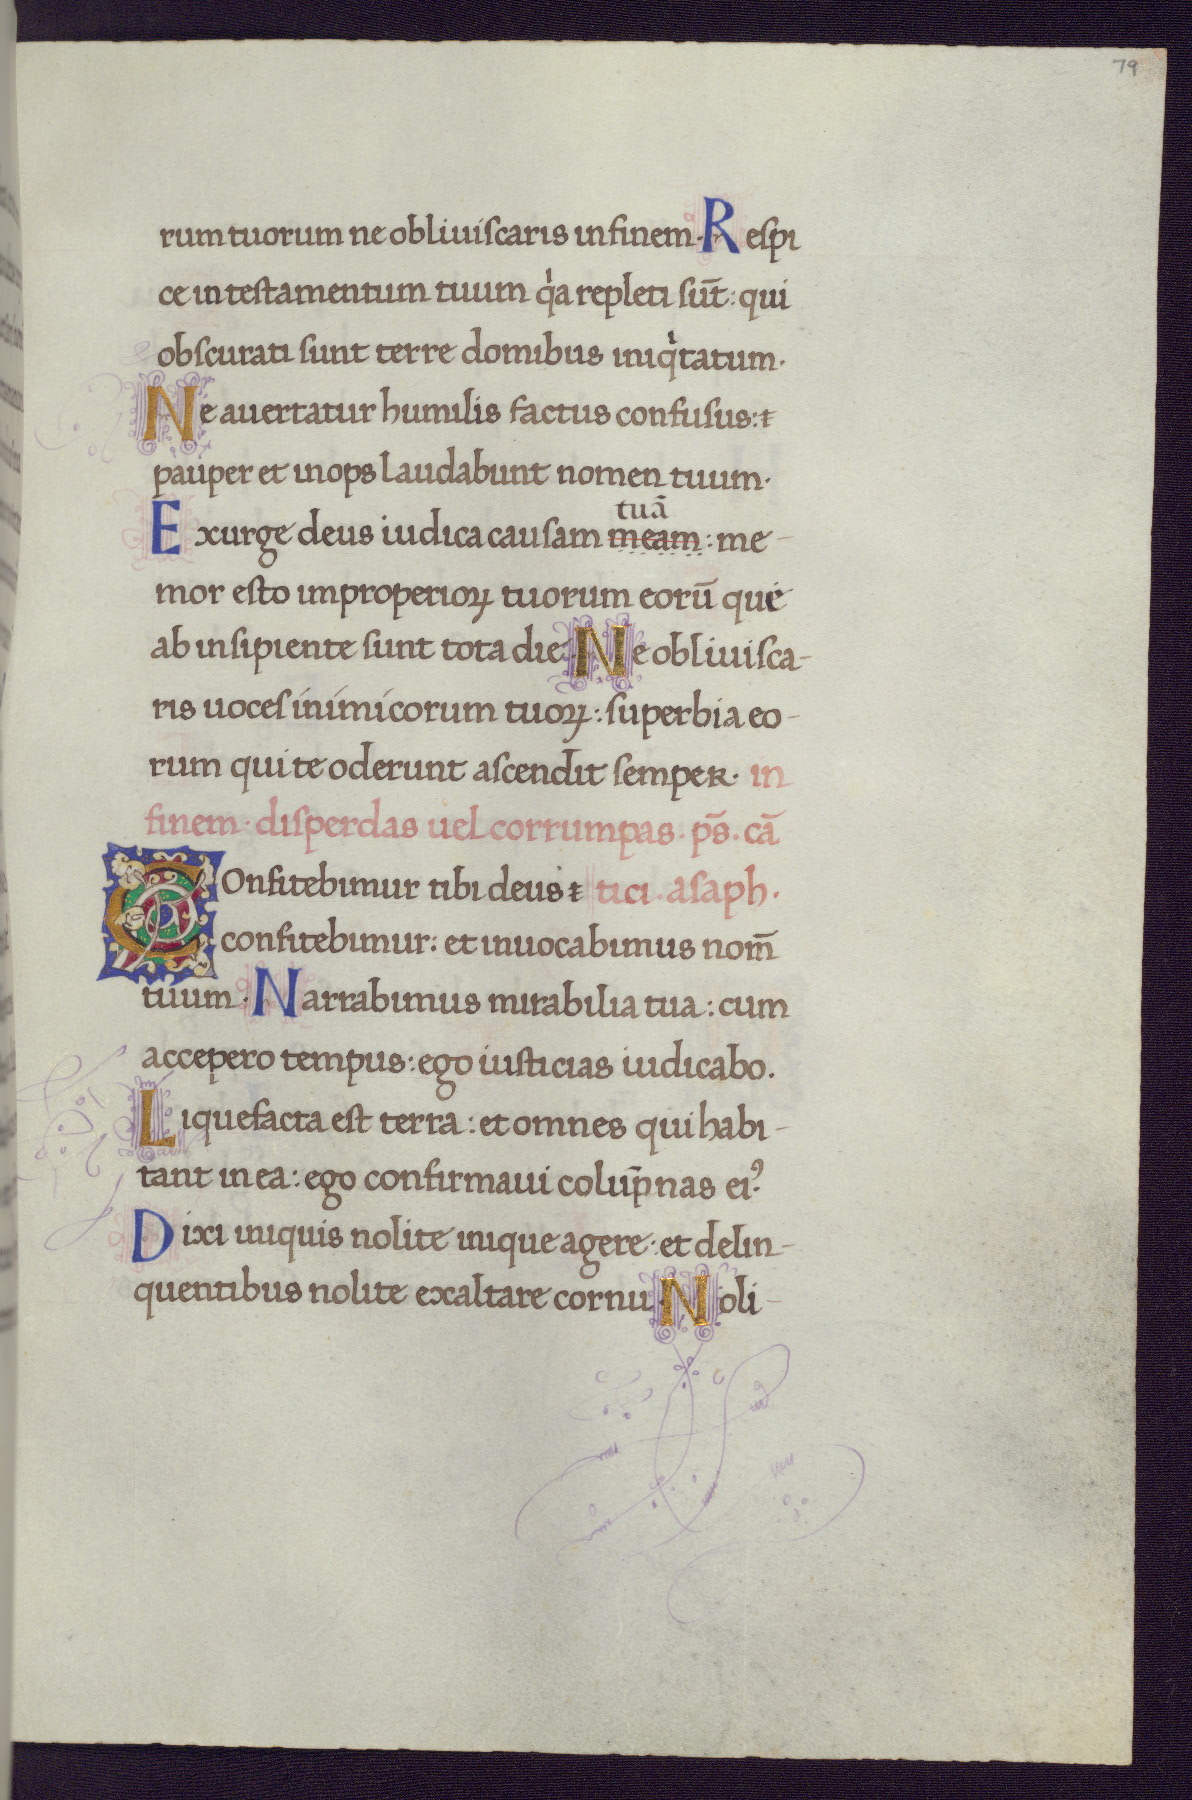 79
rum tuorum ne obliuiscaris in finem. Respi
ce in testamentum tuum qͥa repleti sūt: qui
obscurati sunt terre domibus iniqͥtatum.
Ne auertatur humilis factus confusus: ⁊
pauper et inops laudabunt nomen tuum.
tuā
Exurge deus iudica causam meam: me-
mor esto improperioꝝ tuorum eorū que
ab insipiente sunt tota die. Ne obliuisca-
ris uoces inimicorum tuoꝝ: superbia eo-
rum qui te oderunt ascendit semper. in
finem. disperdas uel corrumpas. ps̄. cā
COnfitebimur tibi deus ⁊ tici. asaph.
confitebimur: et inuocabimus nom̄
tuum. Narrabimus mirabilia tua: cum
accepero tempus: ego iusticias iudicabo.
Liquefacta est terra: et omnes qui habi-
tant in ea: ego confirmaui colup̄nas eiꝰ.
Dixi iniquis nolite inique agere: et delin-
quentibus nolite exaltare cornu. Noli-